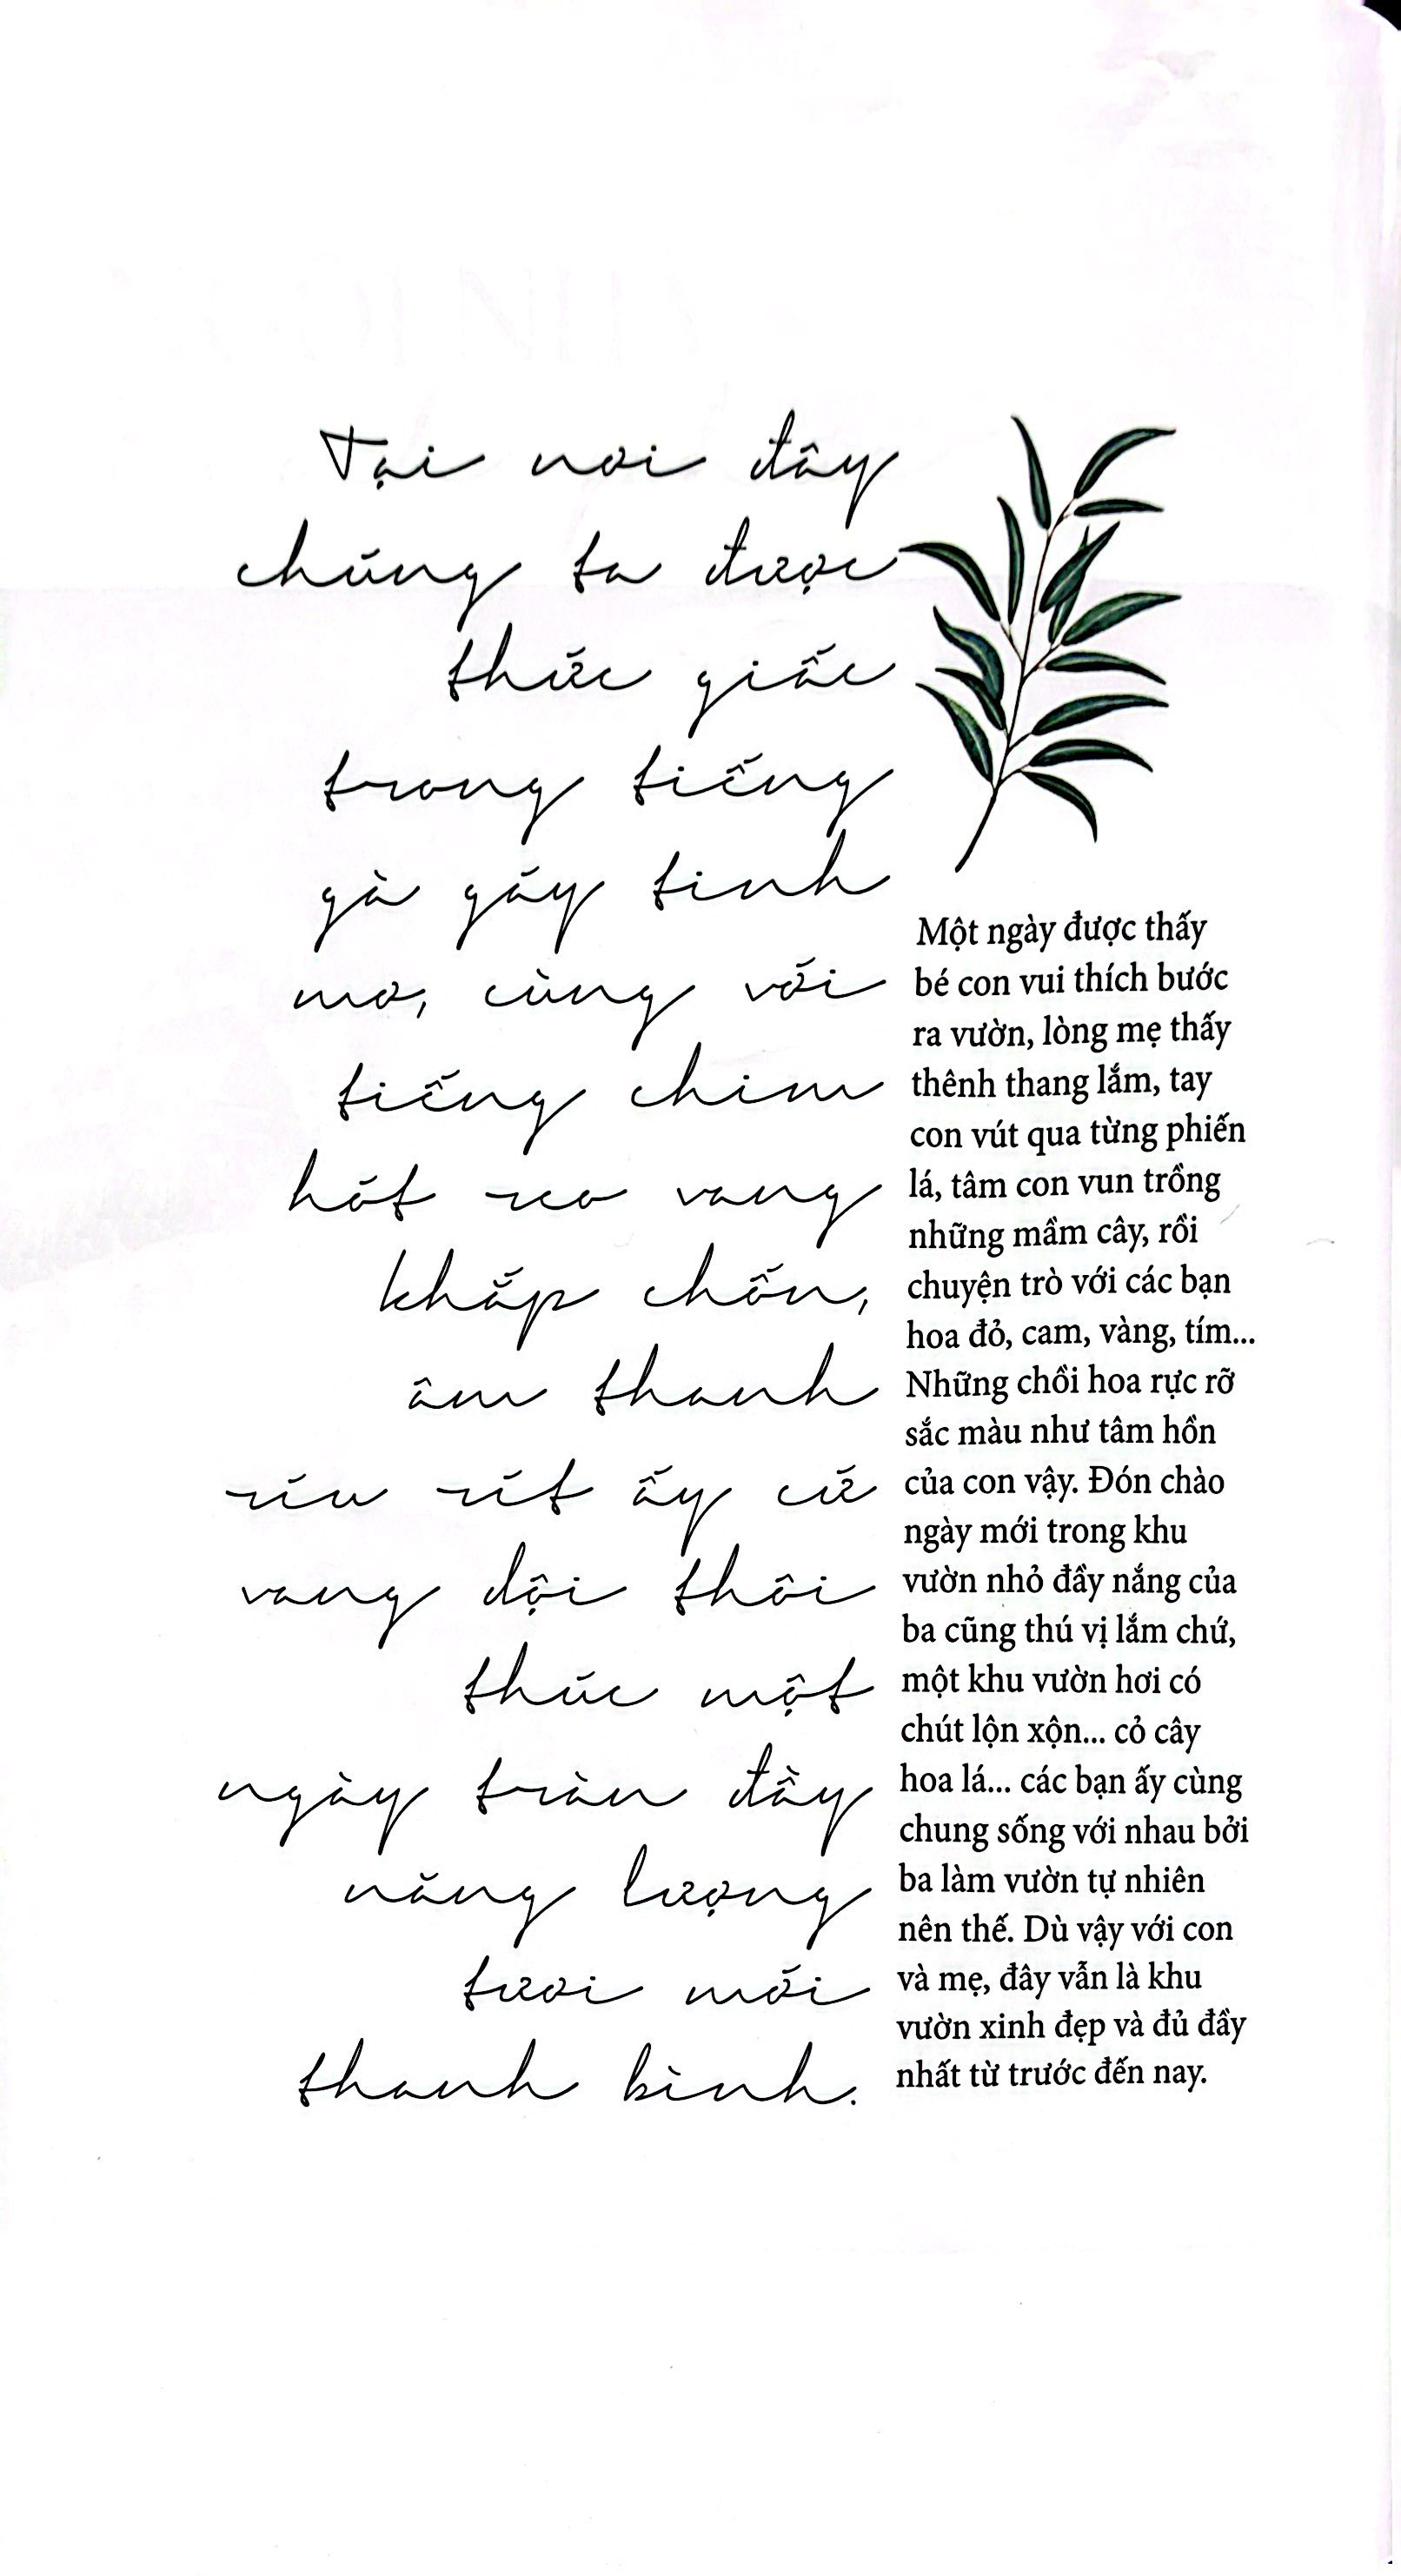 Tại nơi đây
chúng ta được
thức giấc
trong tiếng
gà gáy tinh
mơ, cùng với
tiếng chim
hót reo vang
khắp chốn,
âm thanh
ríu rít ấy cứ
vang dội thôi
thúc một
ngày tràn đầy
năng lượng
tươi mới
thanh bình.
Một ngày được thấy
bé con vui thích bước
ra vườn, lòng mẹ thấy
thênh thang lắm, tay
con vút qua từng phiến
lá, tâm con vun trồng
những mầm cây, rồi
chuyện trò với các bạn
hoa đỏ, cam, vàng, tím...
Những chồi hoa rực rỡ
sắc màu như tâm hồn
của con vậy. Đón chào
ngày mới trong khu
vườn nhỏ đầy nắng của
ba cũng thú vị lắm chứ,
một khu vườn hơi có
chút lộn xộn... cỏ cây
hoa lá... các bạn ấy cùng
chung sống với nhau bởi
ba làm vườn tự nhiên
nên thế. Dù vậy với con
và mẹ, đây vẫn là khu
vườn xinh đẹp và đủ đầy
nhất từ trước đến nay.